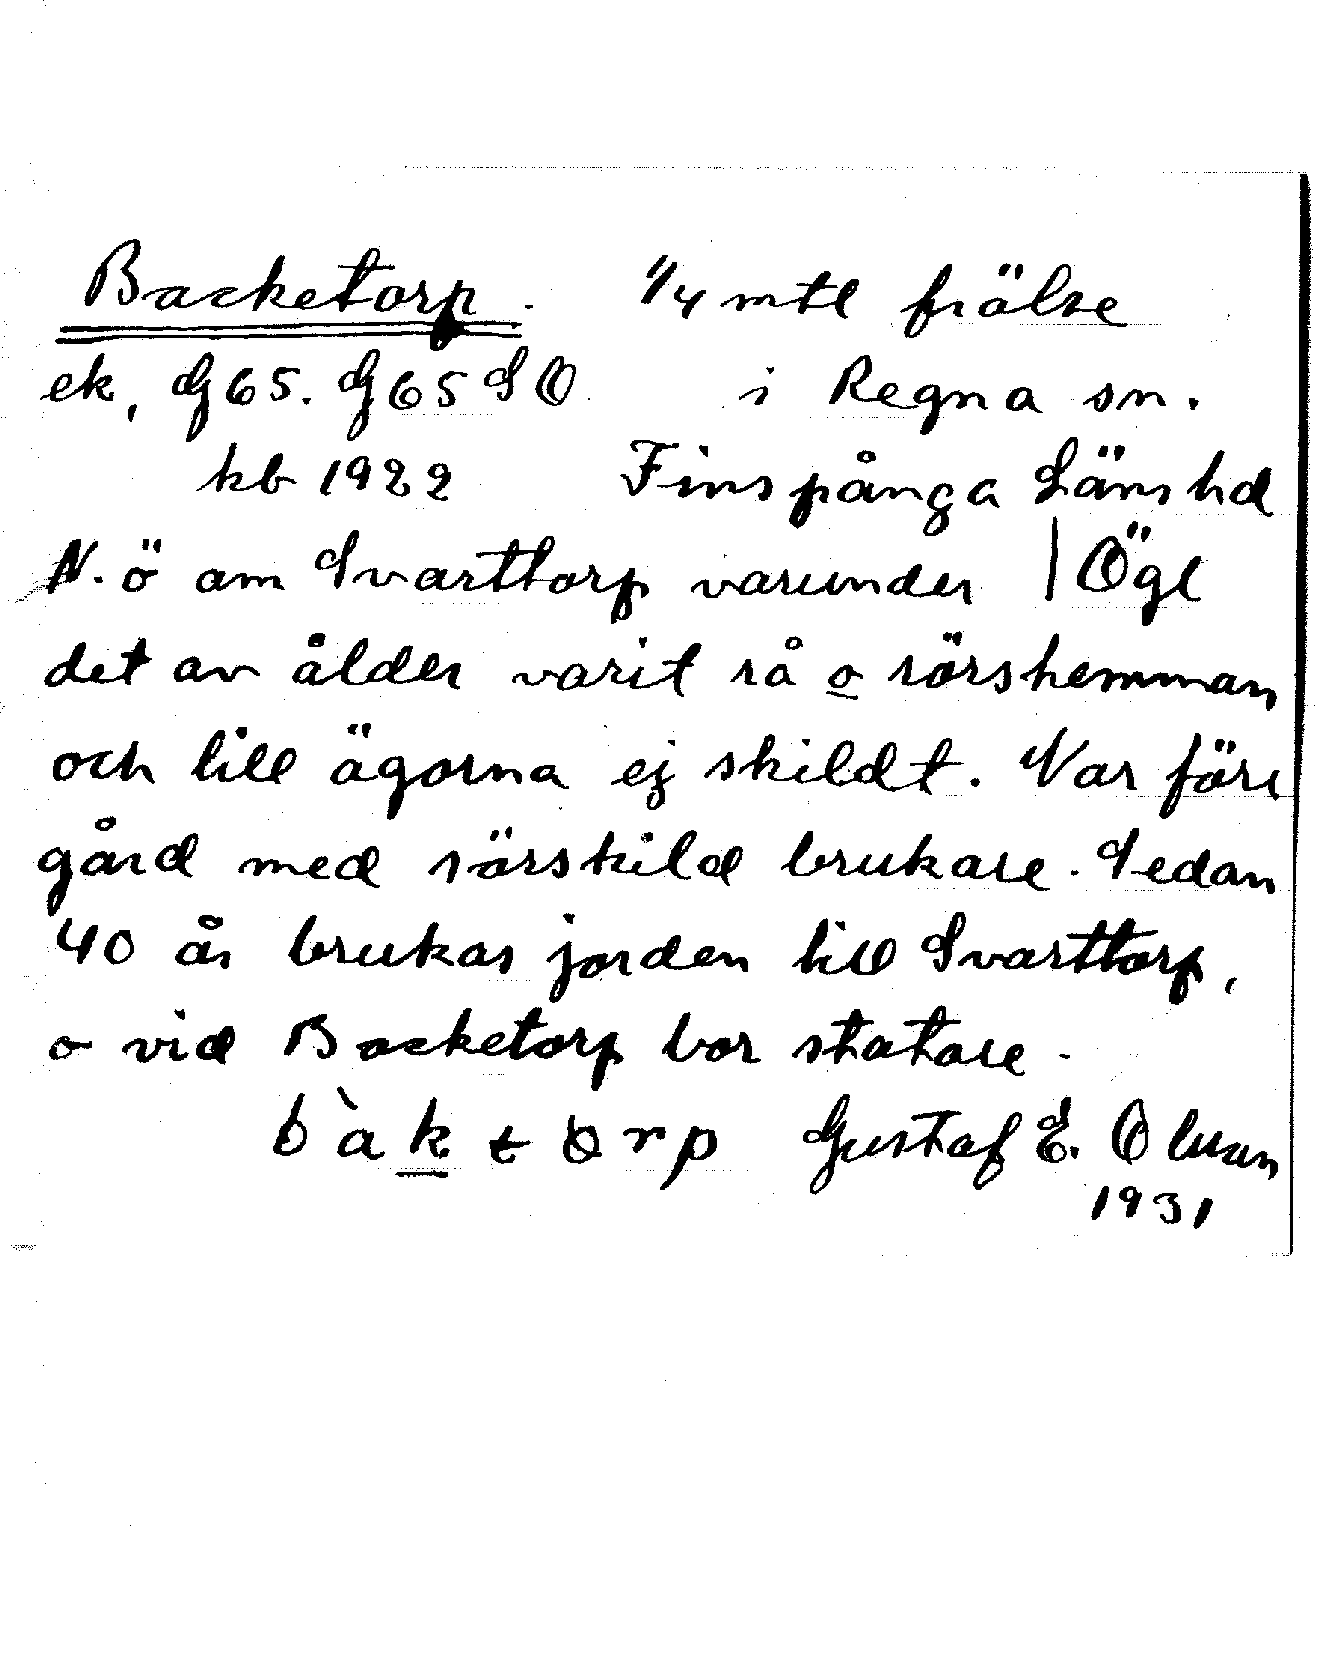 Backetorp. 1/4 mtl frälse
ek, G65. G65 SO i Regna sn.
kb 1922 Finspånga Läns hd
N.ö om Svarttorp varunder | Ögl
det av ålder varit rå o rörshemman
och till ägorna ej skildt. Var förr
gård med särskild brukare. Sedan
40 år brukas jorden till Svarttorp,
o vid Backetorp bor statare.
b`a k t o r p Gustaf E. Olsson
1931